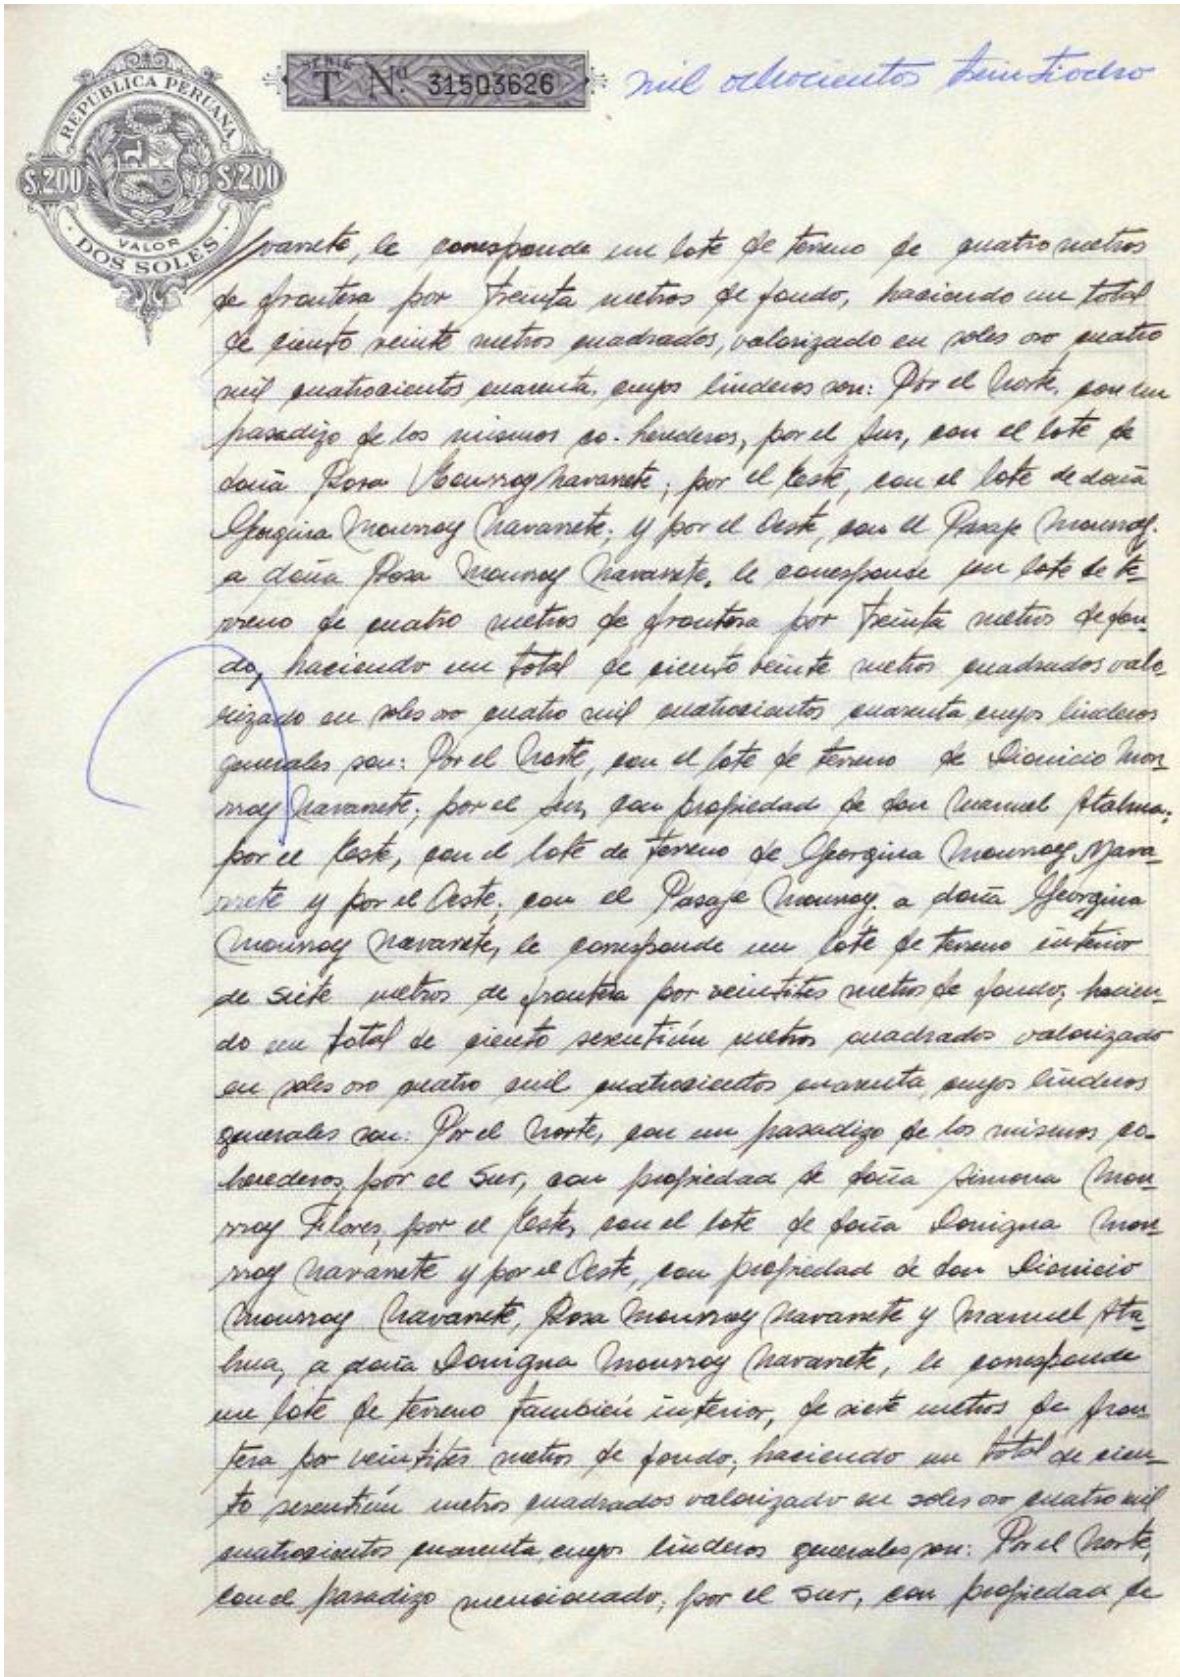 REPUBLICA PERUANA
S/.200 S/.200
VALOR
DOS SOLES
SERIE
T Nº 31503626
mil ochocientos treintiocho
varrete, le corresponde un lote de terreno de cuatro metros
de frontera por treinta metros de fondo, haciendo un total
de ciento veinte metros cuadrados, valorizado en soles oro cuatro
mil cuatrocientos cuarenta, cuyos linderos son: Por el Norte, con un
pasadizo de los mismos co-herederos, por el Sur, con el lote de
doña Rosa Monrroy Navarrete; por el Este, con el lote de doña
Georgina Monrroy Navarrete; y por el Oeste, con el Pasaje Monrroy.
a doña Rosa Monrroy Navarrete, le corresponde un lote de te-
rreno de cuatro metros de frontera por treinta metros de fon-
do, haciendo un total de ciento veinte metros cuadrados valo-
rizado en soles oro cuatro mil cuatrocientos cuarenta cuyos linderos
generales son: Por el Norte, con el lote de terreno de Dionicio Mon-
rroy Navarrete; por el Sur, con propiedad de don Manuel Atahua;
por el Este, con el lote de terreno de Georgina Monrroy Nava-
rrete y por el Oeste, con el Pasaje Monrroy. a doña Georgina
Monrroy Navarrete, le corresponde un lote de terreno interior
de siete metros de frontera por veintitres metros de fondo, hacien-
do un total de ciento sesentiún metros cuadrados valorizado
en soles oro cuatro mil cuatrocientos cuarenta, cuyos linderos
generales son: Por el Norte, con un pasadizo de los mismos co-
herederos, por el Sur, con propiedad de doña Simona Mon-
rroy Flores, por el Este, con el lote de doña Donigna Mon-
rroy Navarrete y por el Oeste, con propiedad de don Dionicio
Monrroy Navarrete, Rosa Monrroy Navarrete y Manuel Ata-
hua, a doña Donigna Monrroy Navarrete, le corresponde
un lote de terreno también interior, de siete metros de fron-
tera por veintitres metros de fondo; haciendo un total de cien-
to sesentiún metros cuadrados valorizado en soles oro cuatro mil
cuatrocientos cuarenta, cuyos linderos generales son: Por el Norte,
con el pasadizo mencionado; por el Sur, con propiedad de